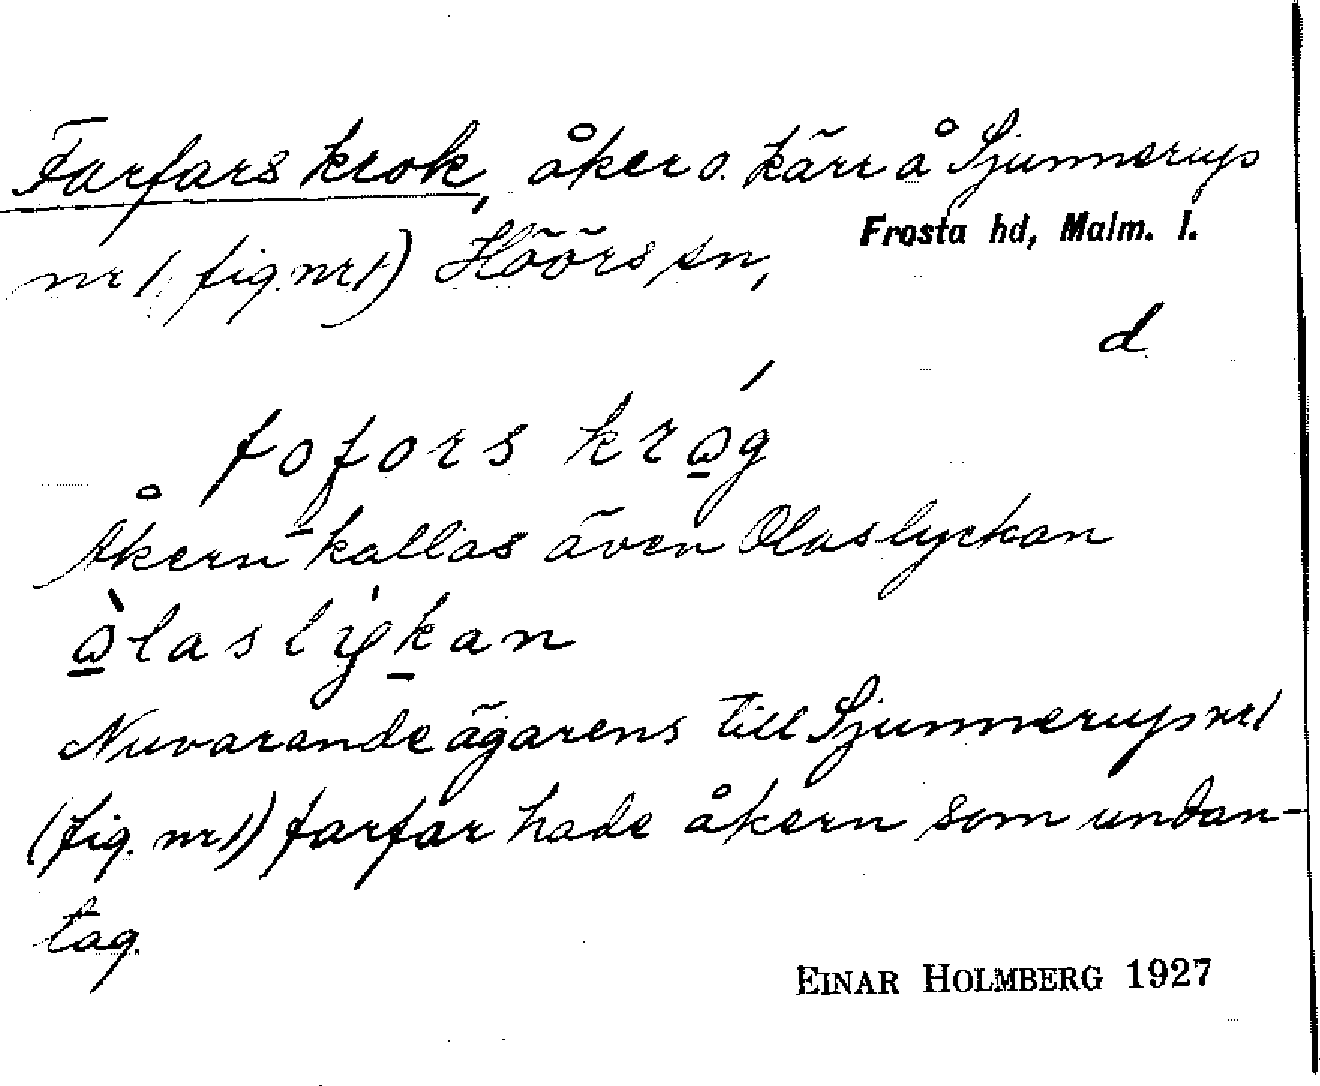 Farfars krok, åker o. kärr å Sjunnerup
Frosta hd, Malm. l.
nr 1, fig. nr 1) Höörs sn,
d
fofors krǫ́g
Åkern kallas även Olaslyckan
ǫ̀laslýḵan
Nuvarande ägarens till Sjunnerup nr 1
(fig. nr 1) farfar hade åkern som undan-
tag.
EINAR HOLMBERG 1927